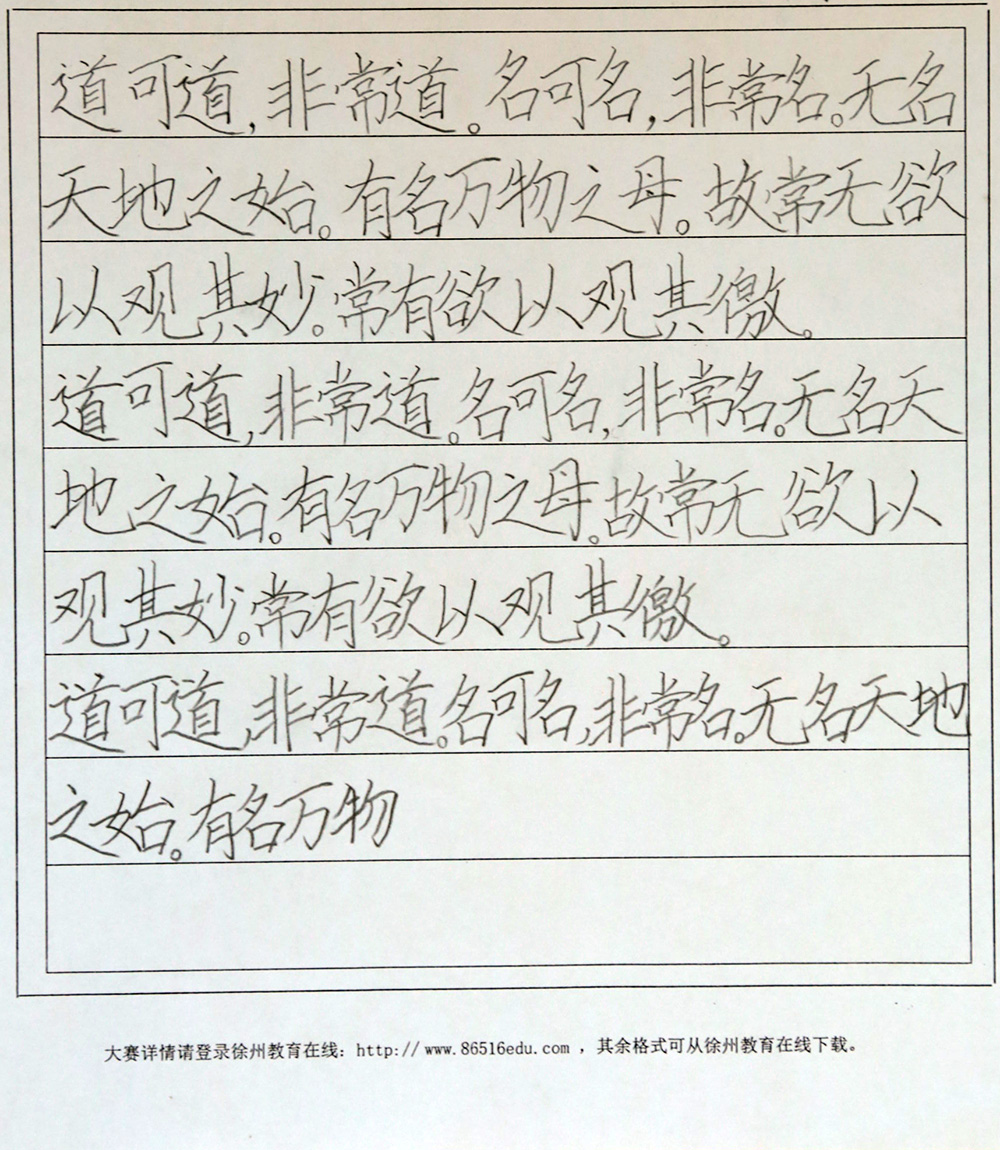 道可道,非常道。名可名,非常名。无名
天地之始。有名万物之母。故常无欲
以观其妙。常有欲以观其徼。
道可道,非常道。名可名,非常名。无名天
地之始。有名万物之母。故常无欲以
观其妙。常有欲以观其徼。
道可道,非常道。名可名,非常名。无名天地
之始。有名万物
大赛详情请登录徐州教育在线：http://www.86516edu.com ，其余格式可从徐州教育在线下载。